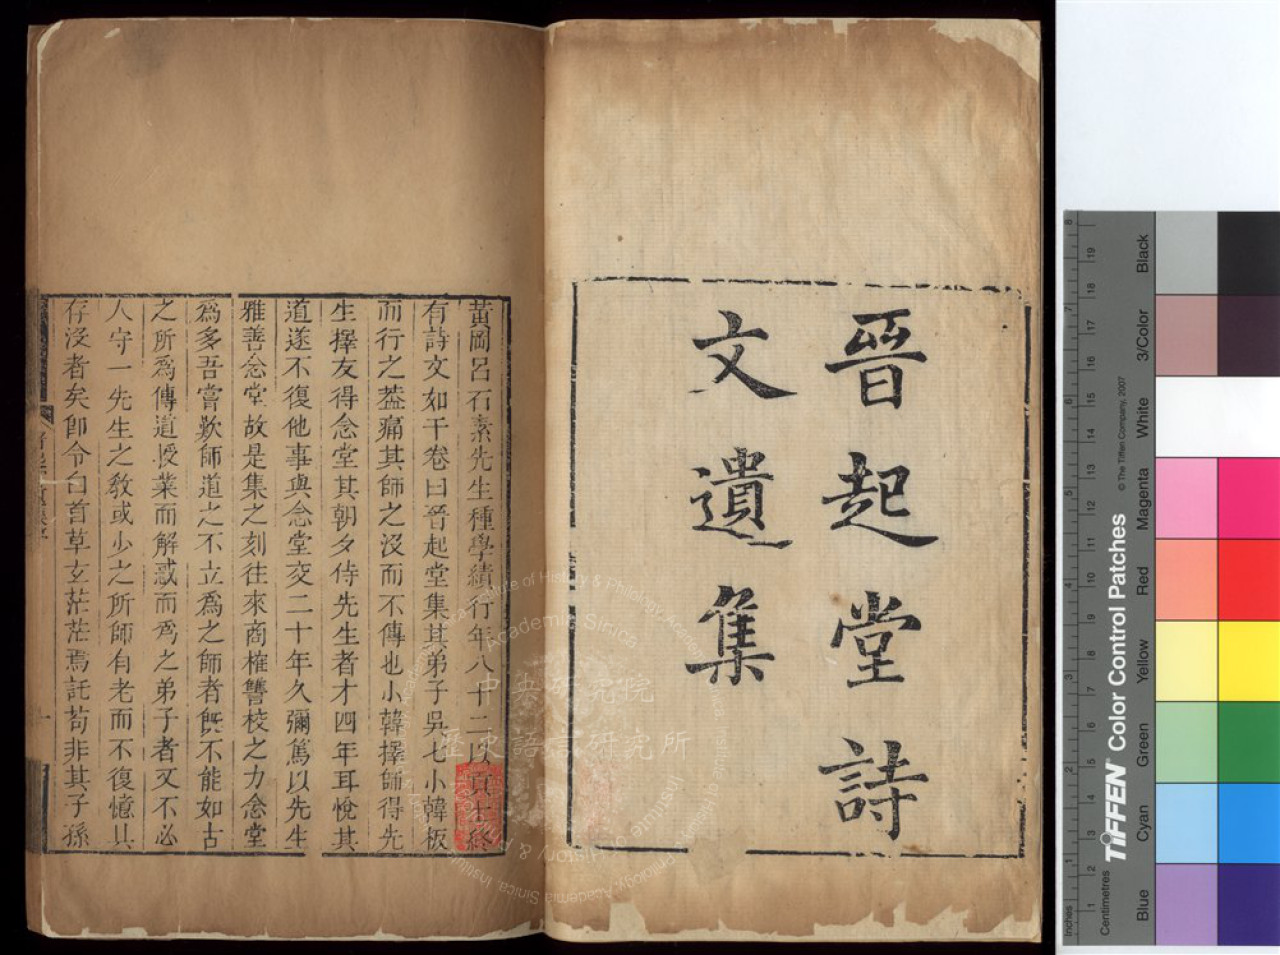 晉起堂詩
文遺集
黃岡呂石素先生種學績行年八十二以貢士終
有詩文如干卷曰晉起堂集其弟子吳七小韓板
而行之葢痛其師之沒而不傳也小韓擇師得先
生擇友得念堂其朝夕侍先生者才四年耳悅其
道遂不復他事與念堂交二十年久彌篤以先生
雅善念堂故是集之刻往來商榷讐校之力念堂
爲多吾嘗歎師道之不立爲之師者旣不能如古
之所爲傳道授業而解惑而爲之弟子者又不必
人守一先生之敎或少之所師有老而不復憶其
存沒者矣卽令白首草玄茫茫焉託苟非其子孫
中央研究院
歷史語言研究所
Institute of History & Philology, Academia Sinica
Inches
Centimetres
TIFFEN Color Control Patches
© The Tiffen Company, 2007
Blue
Cyan
Green
Yellow
Red
Magenta
White
3/Color
Black